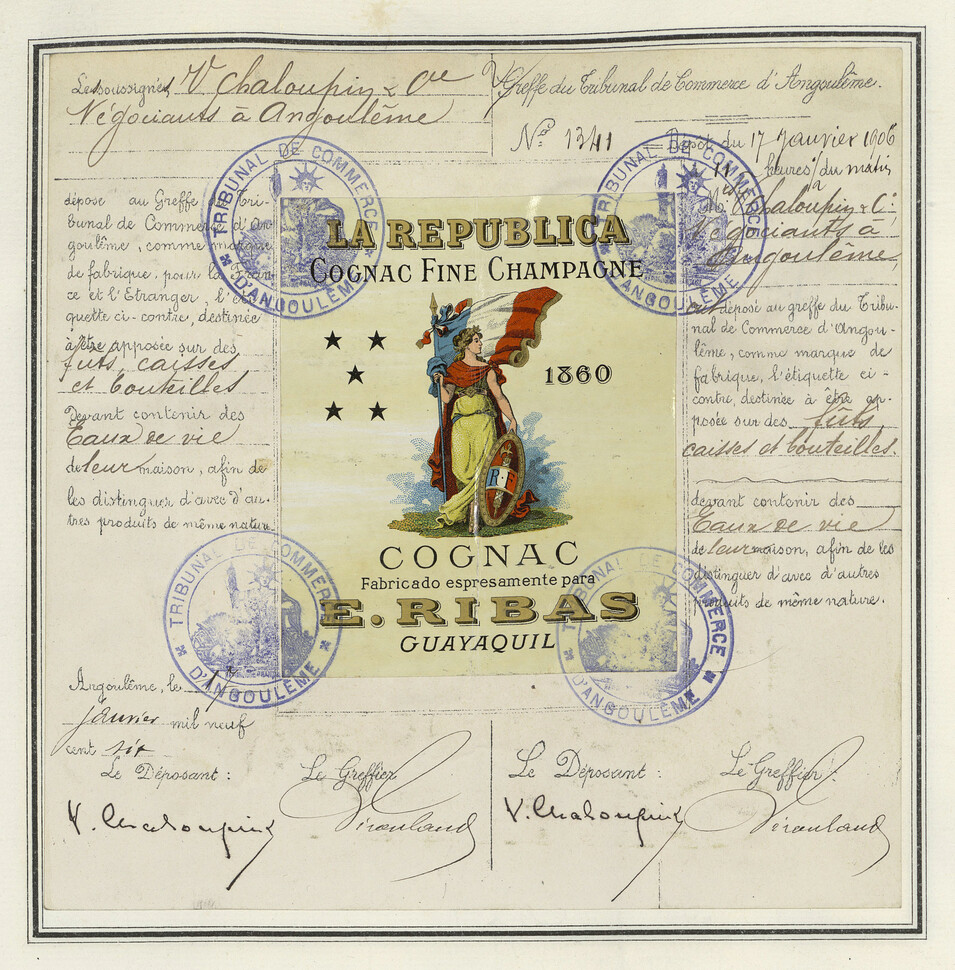 Les soussignés V. Chaloupin & Cie
Négociants à Angoulême
dépose au Greffe du Tri-
bunal de Commerce d'An-
goulême, comme marque
de fabrique, pour la Fran-
ce et l'Etranger, l'éti-
quette ci-contre, destinée
à être apposée sur des
fûts, caisses
et bouteilles
devant contenir des
Eaux de vie
de leur maison, afin de
les distinguer d'avec d'au-
tres produits de même nature
Angoulême, le 17
janvier mil neuf
cent six
Le Déposant :
Le Greffier
V. Chaloupin
LA REPUBLICA
COGNAC FINE CHAMPAGNE
1860
R F
COGNAC
Fabricado espresamente para
E. RIBAS
GUAYAQUIL
TRIBUNAL DE COMMERCE
D'ANGOULÊME
TRIBUNAL DE COMMERCE
D'ANGOULÊME
TRIBUNAL DE COMMERCE
D'ANGOULÊME
TRIBUNAL DE COMMERCE
D'ANGOULÊME
Greffe du Tribunal de Commerce d'Angoulême.
No 1341
Dépôt du 17 Janvier 1906
heures du matin
V. Chaloupin & Cie
Négociants à
Angoulême,
ont déposé au greffe du Tribu-
nal de Commerce d'Angou-
lême, comme marque de
fabrique, l'étiquette ci-
contre, destinée à être ap-
posée sur des fûts
caisses et bouteilles.
devant contenir des
Eaux de vie
de leur maison, afin de les
distinguer d'avec d'autres
produits de même nature.
Le Déposant :
Le Greffier
V. Chaloupin